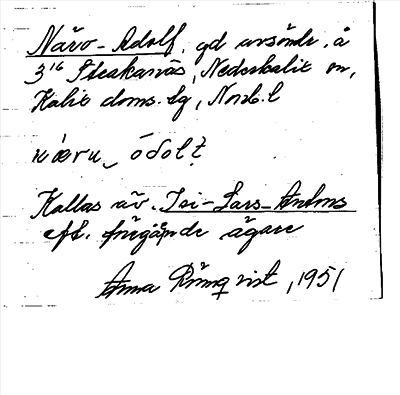 Näro-Adolf, gd avsöndr. å
3¹⁶ Fleskanäs, Nederkalix sn,
Kalix doms. lg, Norrb. l
näru ͜ ódolf
Kallas äv. Isi-Lars-Antons
eft. föregående ägare
Anna Rönnqvist, 1951